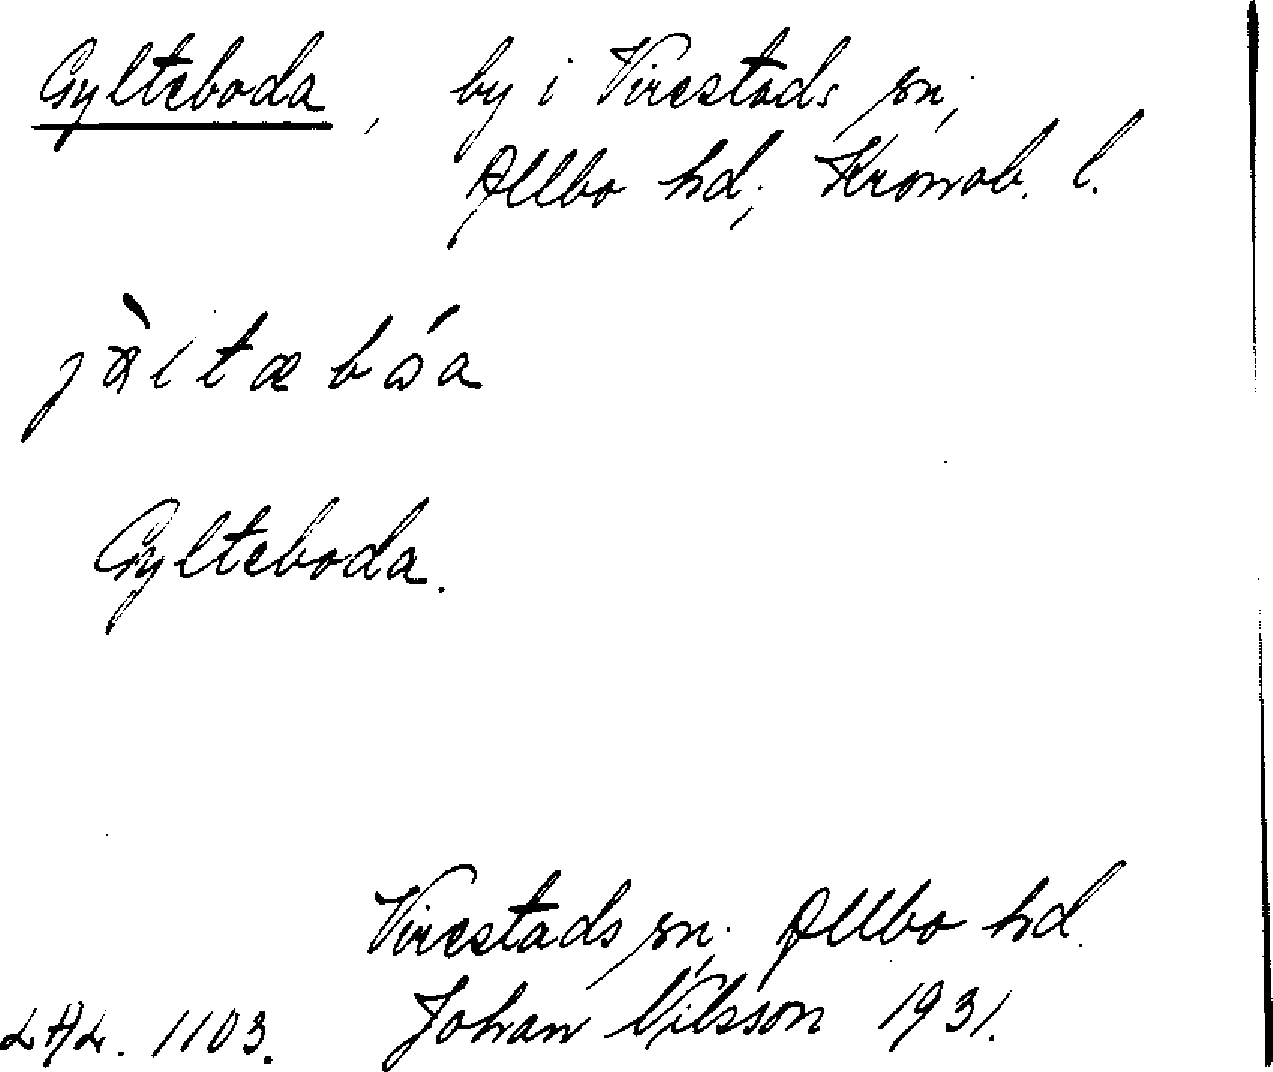 Gylteboda, by i Virestads sn,
Allbo hd, Kronob. l.
jæ̀ltæbóa
Gylteboda.
Virestads sn. Allbo hd.
LAL. 1103. Johan Nilsson 1931.